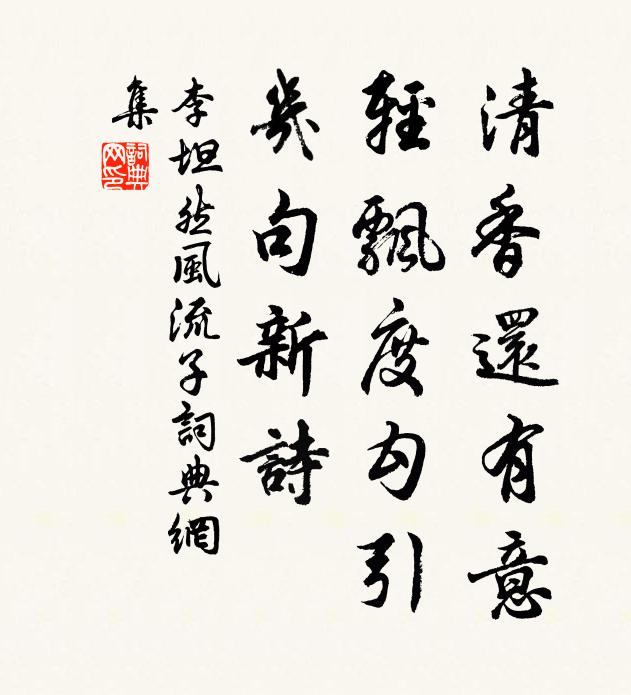 清香還有意
輕飄度勾引
幾句新詩
李坦然風流子詞典網
集
詞典
网印